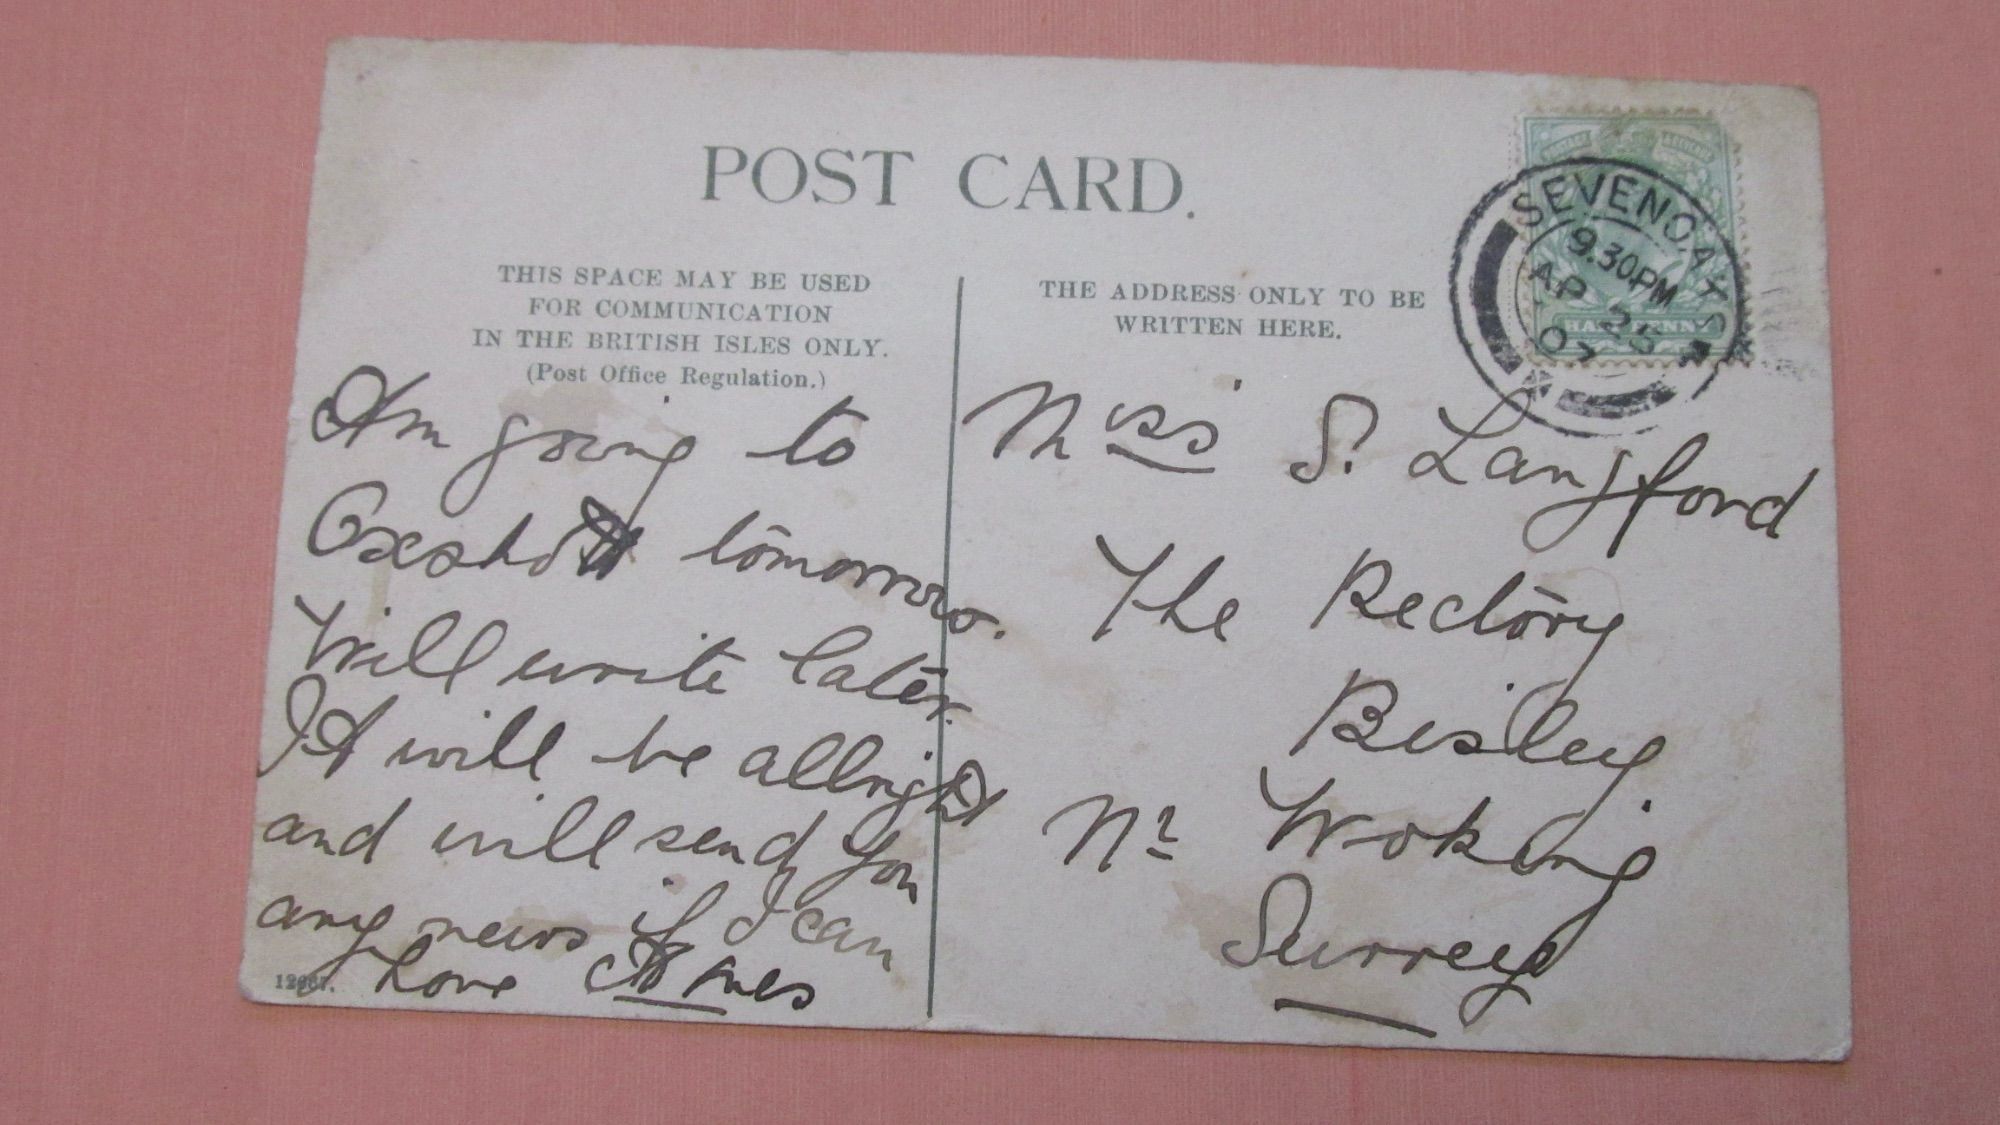 POST CARD.
THIS SPACE MAY BE USED
FOR COMMUNICATION
IN THE BRITISH ISLES ONLY.
(Post Office Regulation.)
THE ADDRESS ONLY TO BE
WRITTEN HERE.
SEVENOAKS
9.30PM
AP 25
07
HALFPENNY
Am going to
Oxshott tomorrow.
Will write later.
It will be allright
and will send you
any news if I can
Love
Miss S. Langford
The Rectory
Bisley.
Nr Woking
Surrey